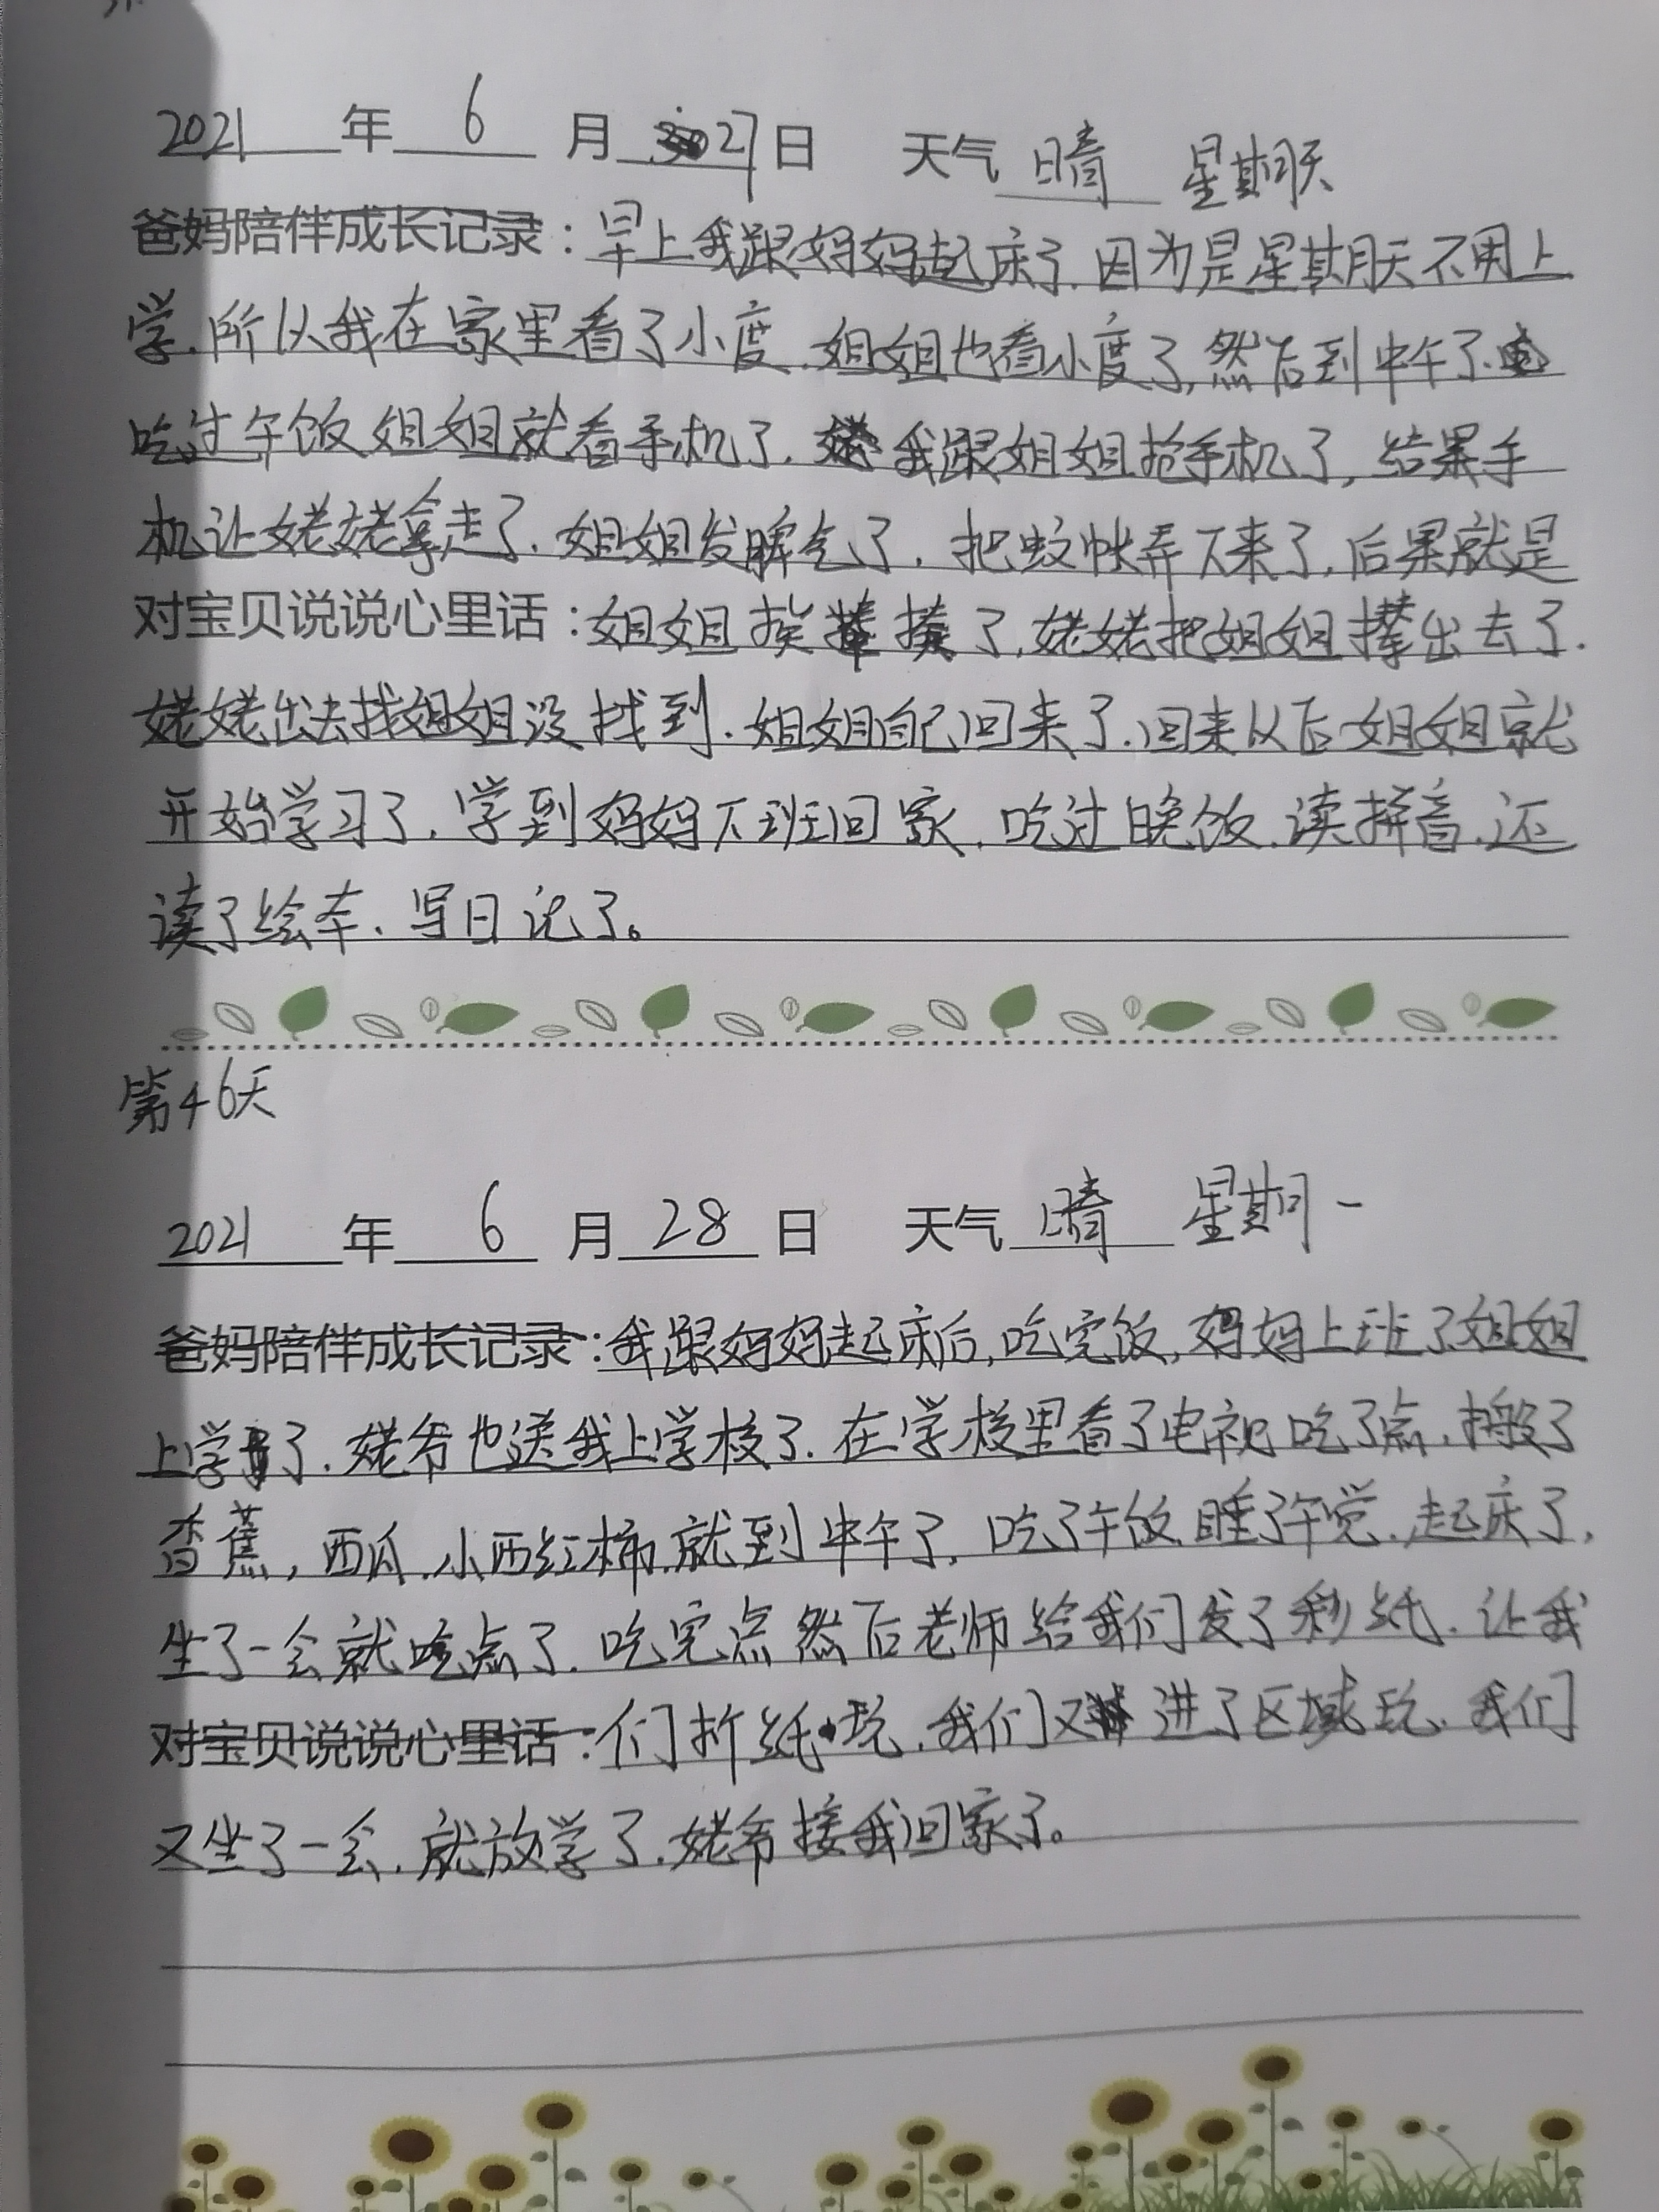 2021年 6 月 27日 天气 晴 星期天
爸妈陪伴成长记录：早上我跟妈妈起床了.因为是星期天不用上
学.所以我在家里看了小度.姐姐也看小度了,然后到中午了.
吃过午饭姐姐就看手机了.我跟姐姐抢手机了,结果手
机让姥姥拿走了.姐姐发脾气了.把蚊帐弄下来了.后果就是
对宝贝说说心里话：姐姐挨揍了.姥姥把姐姐撵出去了.
姥姥出去找姐姐没找到.姐姐自己回来了.回来以后姐姐就
开始学习了.学到妈妈下班回家.吃过晚饭.读拼音.还
读了绘本.写日记了。
第46天
2021年 6 月 28 日 天气 晴 星期一
爸妈陪伴成长记录：我跟妈妈起床后,吃完饭,妈妈上班了.姐姐
上学了.姥爷也送我上学校了.在学校里看了电视吃了点.搬了
香蕉,西瓜.小西红柿.就到中午了.吃了午饭.睡了午觉.起床了,
坐了一会就吃点了.吃完点然后老师给我们发了彩纸.让我
对宝贝说说心里话：们折纸玩.我们又进了区域玩.我们
又坐了一会.就放学了.姥爷接我回家了。